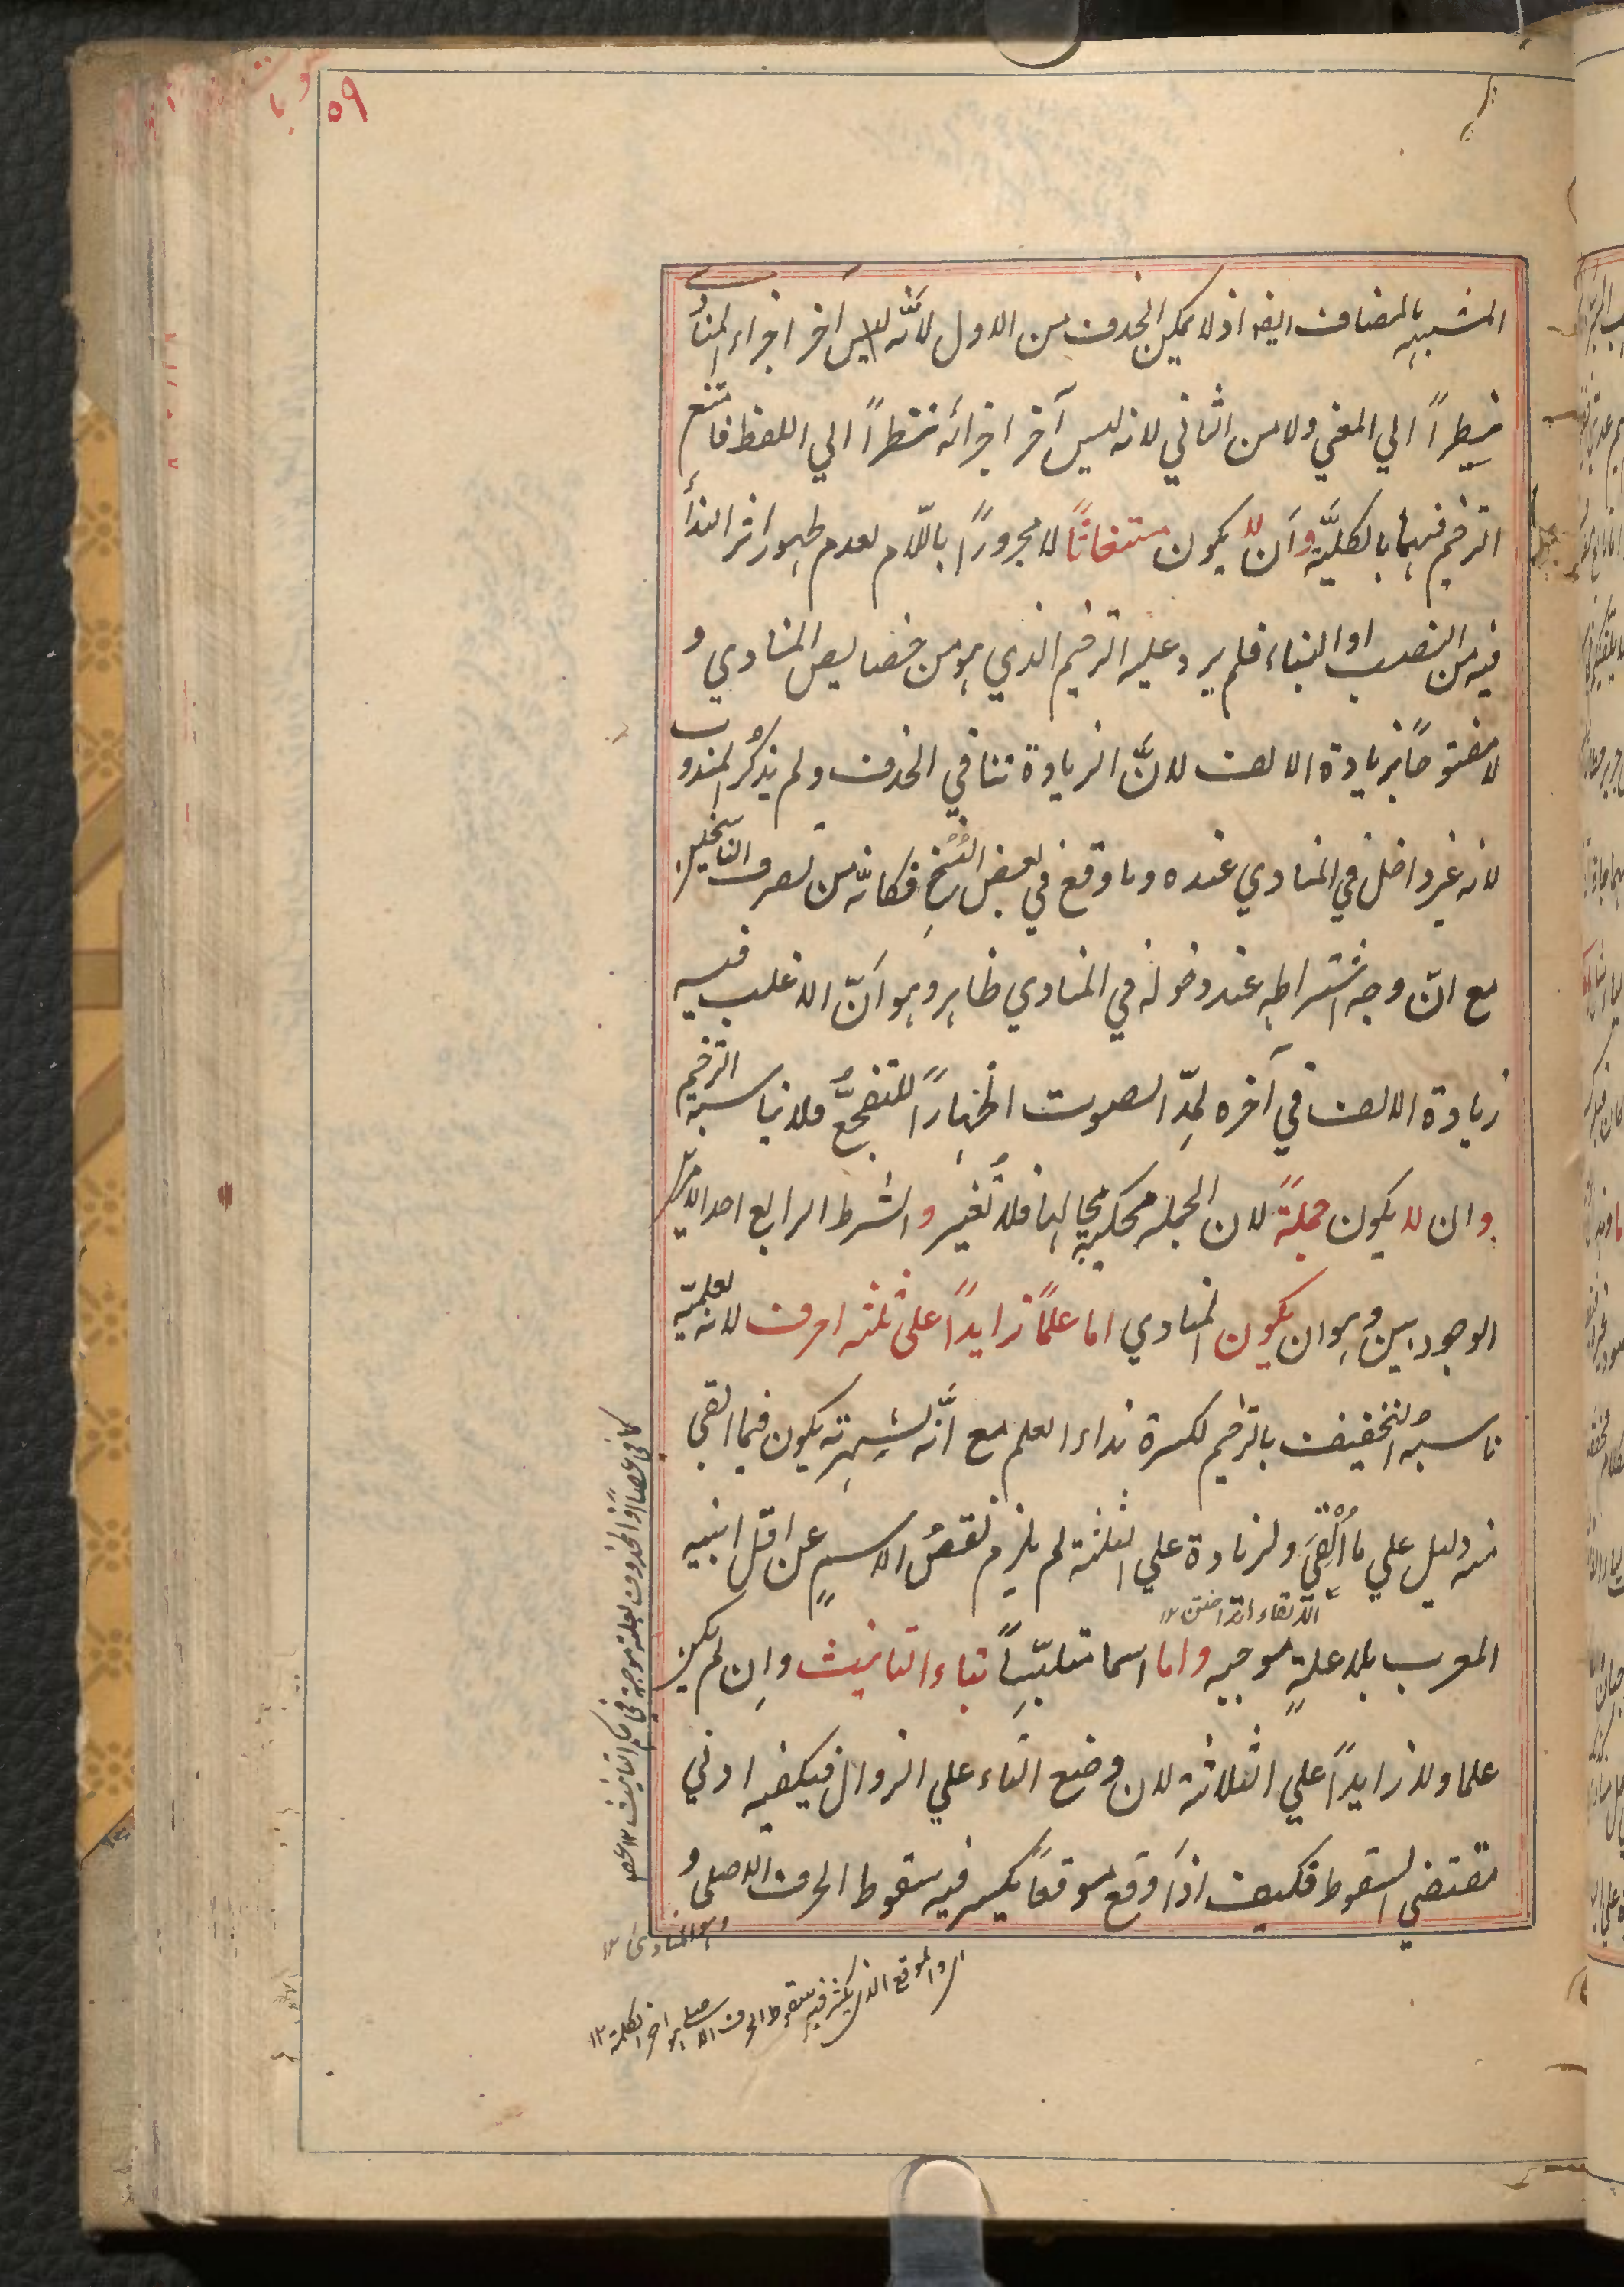 ٥٩
المشبه بالمضاف ايضا اذ لا يمكن الحذف من الاول لانّه ليس اخر اجزاء المنادى
نظراً الي المعني ولا من الثاني لانه ليس آخر اجزائه نظراً الي اللفظ فامتنع
الترخيم فيهما بالكليّة وان لا يكون مستغاثاً لا مجروراً باللّام لعدم ظهور اثر النداء
فيه من النصب او البناء فلم يرد عليه الترخيم الذي هو من خصايص المنادي و
لا مفتوحاً بزيادة الالف لانّ الزيادة تنافي الحذف ولم يذكر المندوب
لانه غير داخل في المنادي عنده وما وقع في بعض النُسَخِ فكانّه من تصرف الناسخين
مع انّ وجه اشتراطه عند دخوله في المنادي ظاهر وهو انّ الاغلب فيه
زيادة الالف في آخره لمدّ الصوت اظهاراً للتفجّع فلا يناسبه الترخيم
وان لا يكون جملةً لان الجملة محكية بحالها فلا تُغير والشرط الرابع احد الامرين
الوجوديين وهو ان يكون المنادي اما علماً زايداً على ثلثه احرف لانه لعلميّه
ناسبه التخفيف بالترخيم لكثرة نداء العلم مع انّه لشهرته يكون فيما ابقي
منه دليل علي ما أُلْقِيَ ولزيادة علي الثلثة لم يلزم نقصُ الاسمِ عن اقل ابنيه
المعرب بلا علةٍ موجبه واما اسما متلبّساً بتاء التانيث وان لم يكن
علما ولا زايداً علي الثلاثة لان وضع التاء علي الزوال فيكفيه ادني
مقتضي السقوط فكيف اذا وقع موقعاً يكثر فيه سقوط الحرف الاصلي و
كما في عصاً اذ المحذوف بعلة موجبة في حكم الثابت ١٢ عص
وهو المنادى ١٢
الموقع الذي يكثر فيه سقوط الحرف الاصلي هو اخر الكلمة ١٢